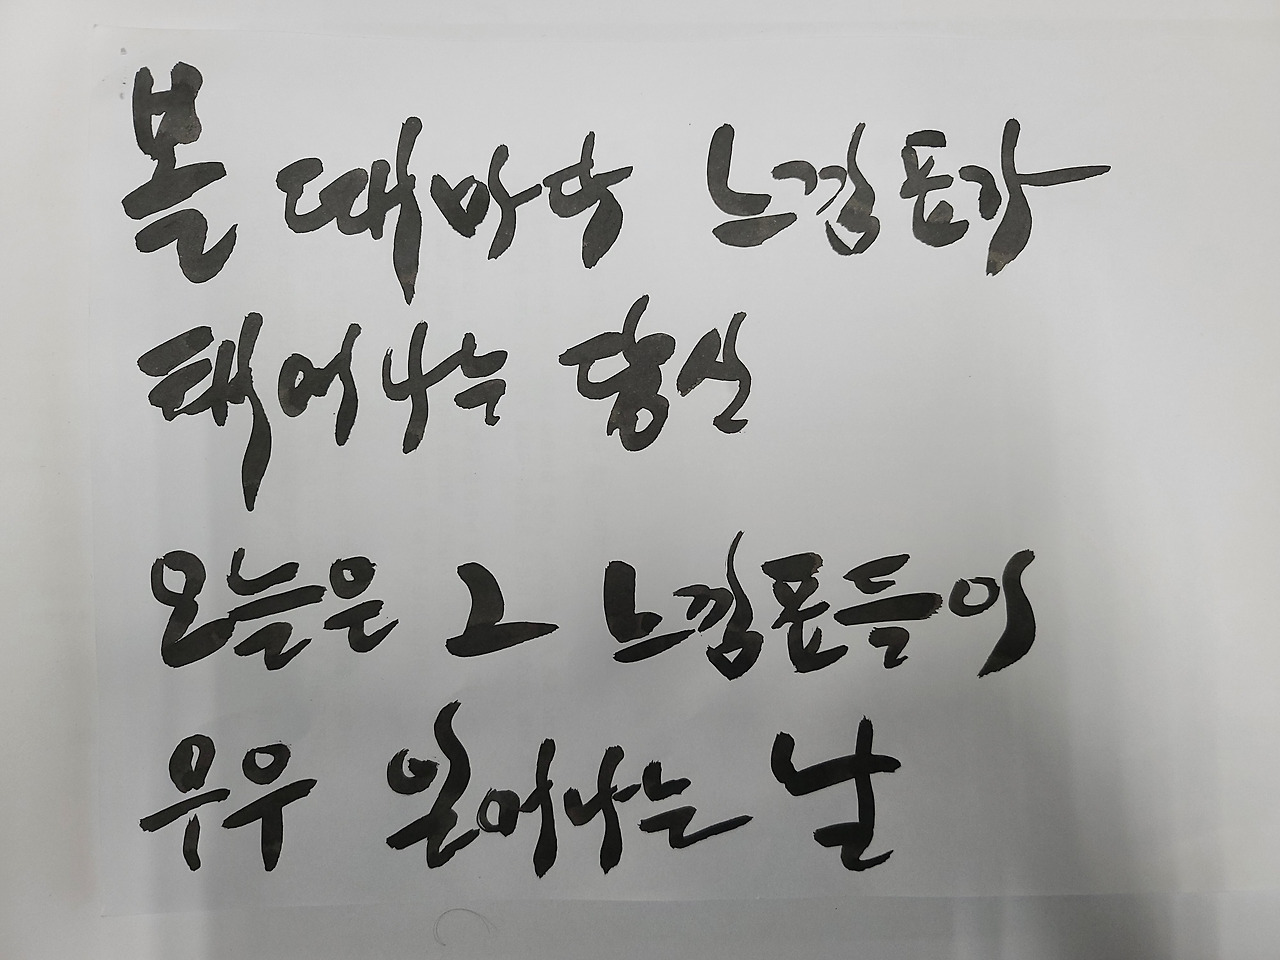 볼 때마다 느낌표가
태어나는 당신
오늘은 그 느낌표들이
우우 일어나는 날